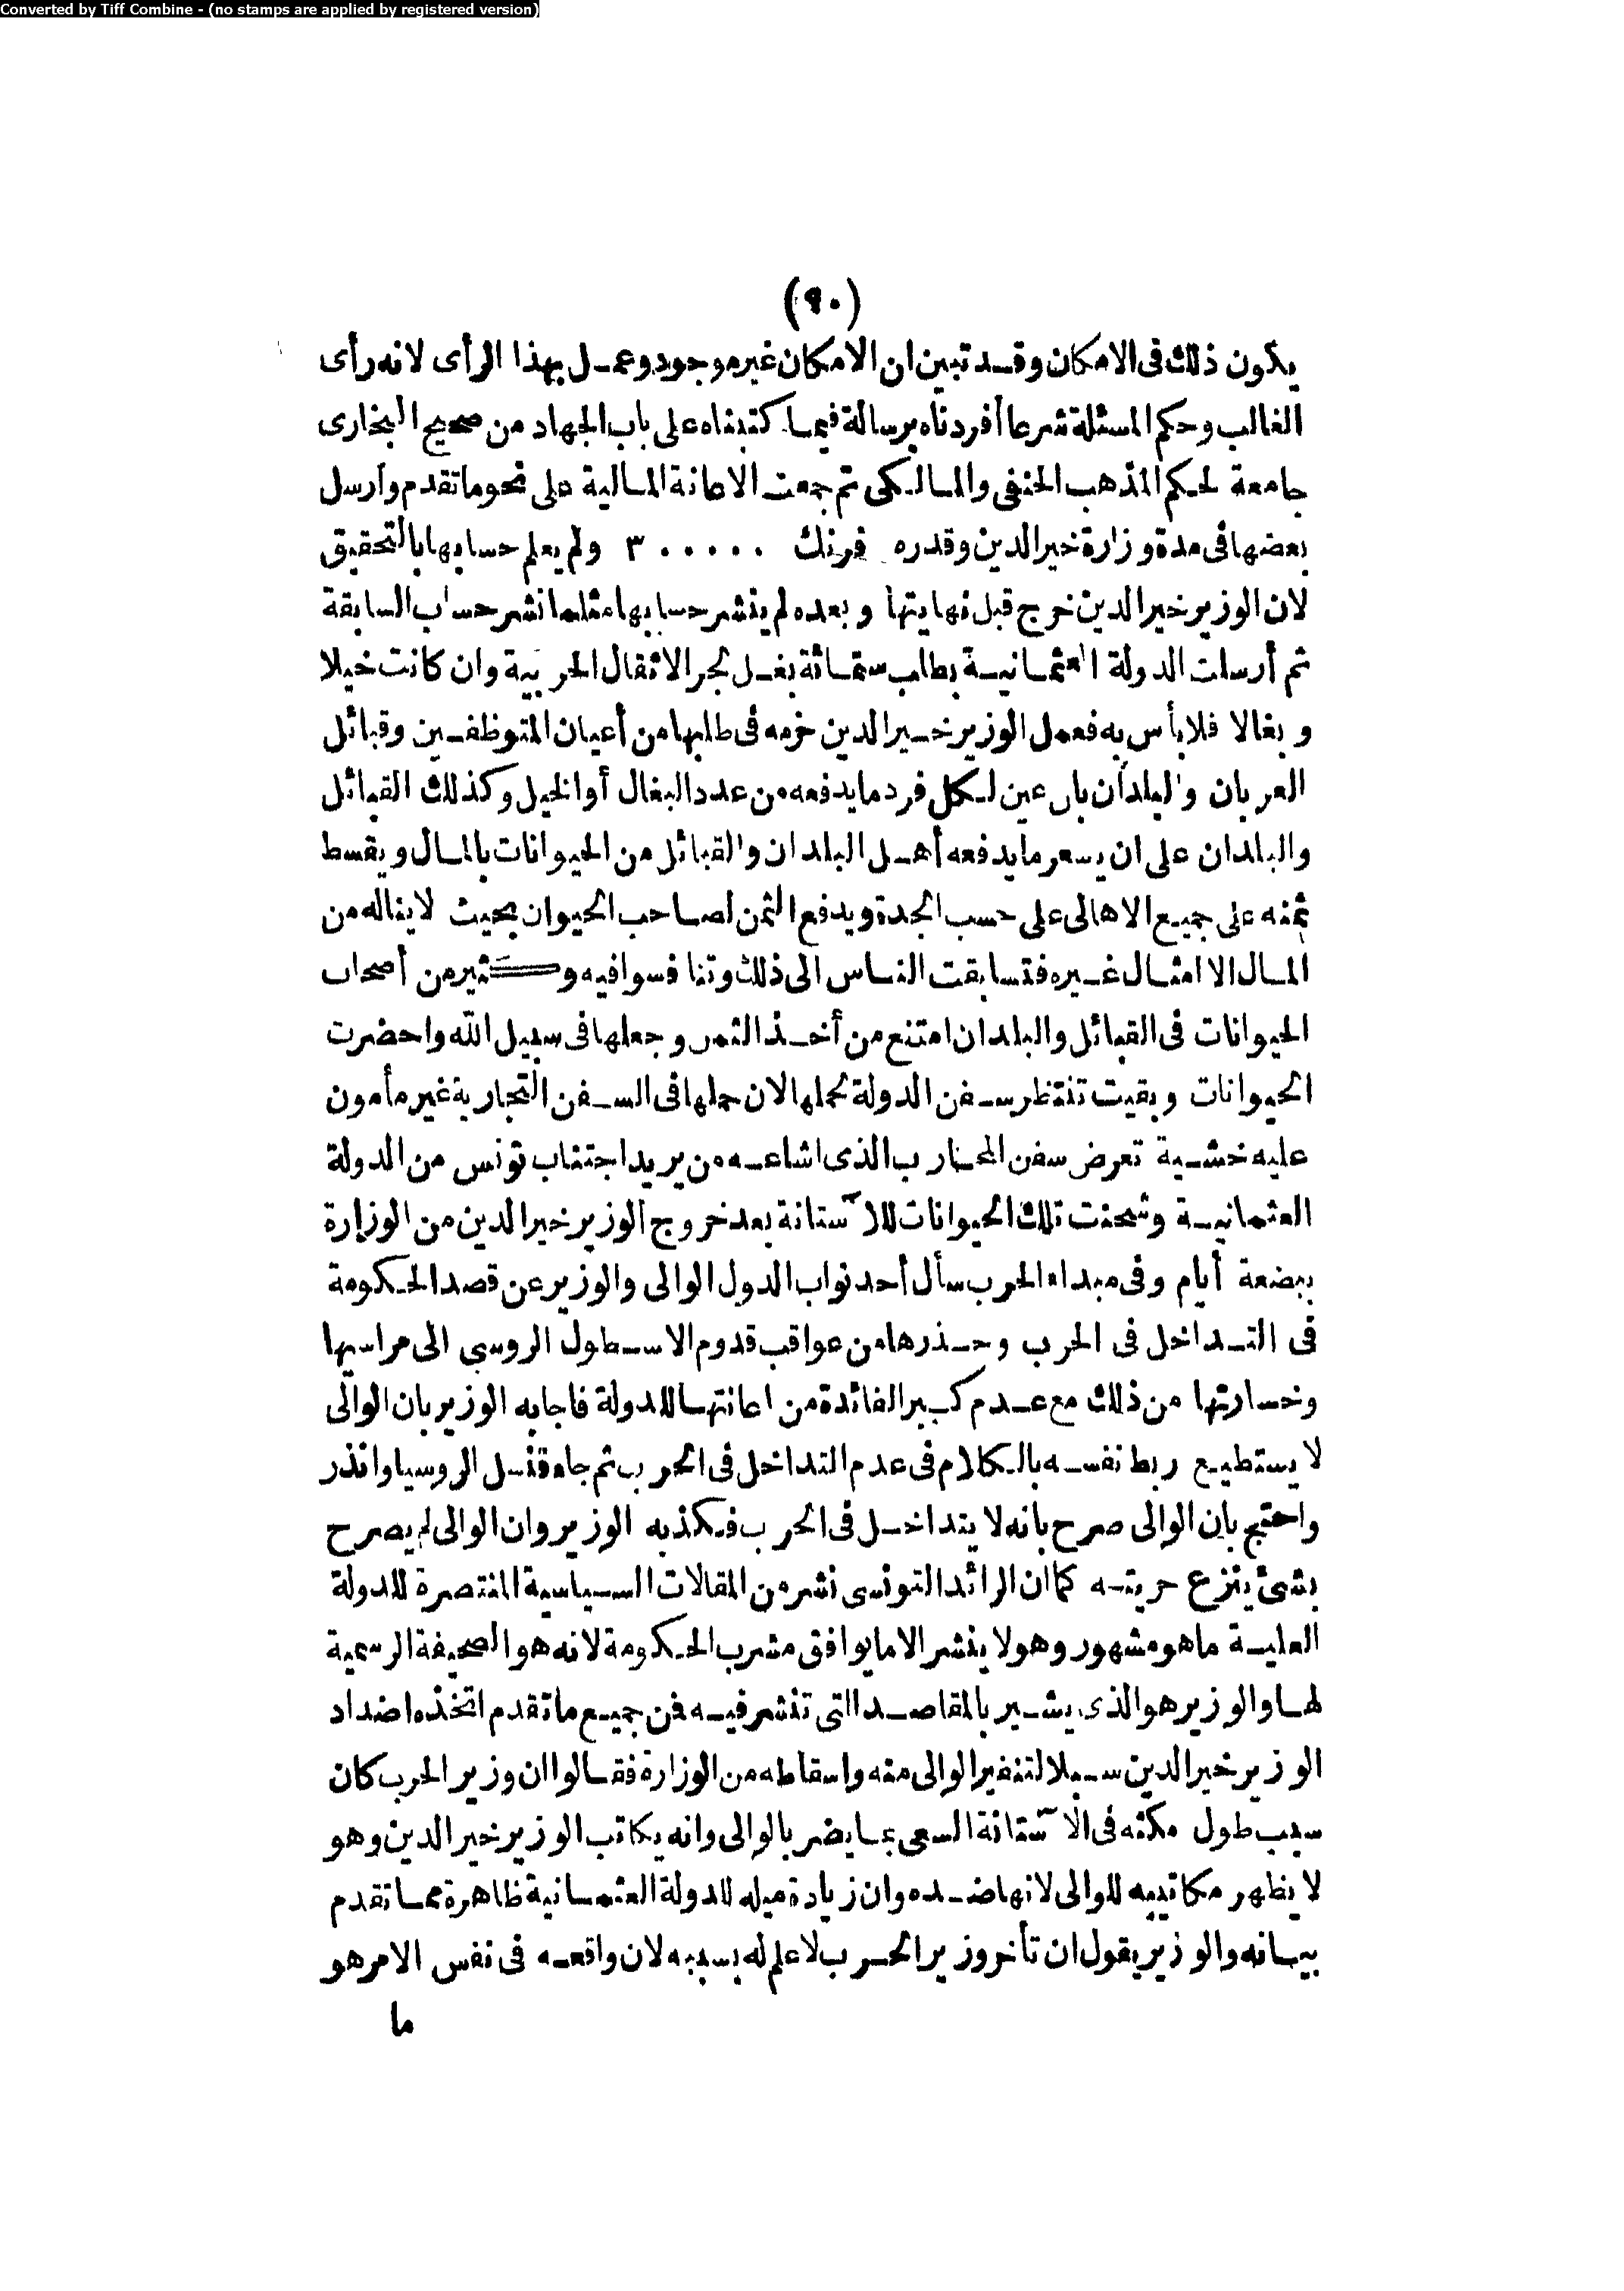 Converted by Tiff Combine - (no stamps are applied by registered version)
(٩٠)
يكون ذلك فى الامكان وقد تبين ان الامكان غير موجود وعمل بهذا الرأى لانه رأى
الغالب وحكم المسئلة شرعا أفردناه برسالة فيما كتبناه على باب الجهاد من صحيح البخارى
جامعة لحكم المذهب الحنفى والمالكى ثم جمعت الاعانة المالية على نحو ما تقدم وأرسل
بعضها فى مدة وزارة خير الدين وقدره فرنك ٣٠٠٠٠٠ ولم يعلم حسابها بالتحقيق
لان الوزير خير الدين خرج قبل نهايتها وبعده لم ينشر حسابها مثلما نشر حساب السابقة
ثم أرسلت الدولة العثمانية بطلب ستمائة بغل لجر الاثقال الحربية وان كانت خيلا
وبغالا فلا بأس به فعمل الوزير خير الدين حزمه فى طلبها من أعيان المتوظفين وقبائل
العربان والبلدان بان عين لكل فرد ما يدفعه من عدد البغال أو الخيل وكذلك القبائل
والبلدان على ان يسعر ما يدفعه أهل البلدان والقبائل من الحيوانات بالمال ويقسط
ثمنه على جميع الاهالى على حسب الجدة ويدفع الثمن لصاحب الحيوان بحيث لا يناله من
المال الا امثال غيره فتسابقت الناس الى ذلك وتنافسوا فيه وكثير من أصحاب
الحيوانات فى القبائل والبلدان امتنع من أخذ الثمن وجعلها فى سبيل الله واحضرت
الحيوانات وبقيت تنتظر سفن الدولة لحملها لان حملها فى السفن التجارية غير مأمون
عليه خشية تعرض سفن المحارب الذى اشاعه من يريد اجتناب تونس من الدولة
العثمانية وشحنت تلك الحيوانات للآستانة بعد خروج الوزير خير الدين من الوزارة
ببضعة أيام وفى مبداء الحرب سأل أحد نواب الدول الوالى والوزير عن قصد الحكومة
فى التداخل فى الحرب وحذرها من عواقب قدوم الاسطول الروسى الى مراسيها
وخسارتها من ذلك مع عدم كبير الفائدة من اعانتها للدولة فاجابه الوزير بان الوالى
لا يستطيع ربط نفسه بالكلام فى عدم التداخل فى الحرب ثم جاء قنسل الروسيا وانذر
واحتج بان الوالى صرح بانه لا يتداخل فى الحرب فكذبه الوزير وان الوالى لم يصرح
بشئ ينزع حريته كما ان الرائد التونسى نشر من المقالات السياسية المنتصرة للدولة
العلية ما هو مشهور وهو لا ينشر الا ما يوافق مشرب الحكومة لانه هو الصحيفة الرسمية
لها والوزير هو الذى يشير بالمقاصد التى تنشر فيه فمن جميع ما تقدم اتخذه اضداد
الوزير خير الدين سبيلا لتنفير الوالى منه واسقاطه من الوزارة فقالوا ان وزير الحرب كان
سبب طول مكثه فى الآستانة السعى بما يضر بالوالى وانه يكاتب الوزير خير الدين وهو
لا يظهر مكاتيبه للوالى لانها ضده وان زيادة ميله للدولة العثمانية ظاهرة مما تقدم
بيانه والوزير يقول ان تأخر وزير الحرب لا علم له بسببه لان واقعه فى نفس الامر هو
ما